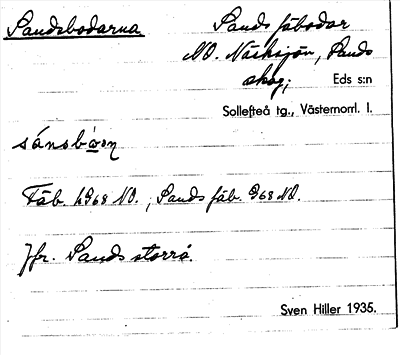 Sandsbodarna
Sands fäbodar
NO. Näcksjön, Sands
skog; Eds s:n
Sollefteå tg., Västernorrl. l.
sánsbòon
Fäb. h968 NO., Sands fäb. 968 NO.
Jfr. Sands storrå.
Sven Hiller 1935.